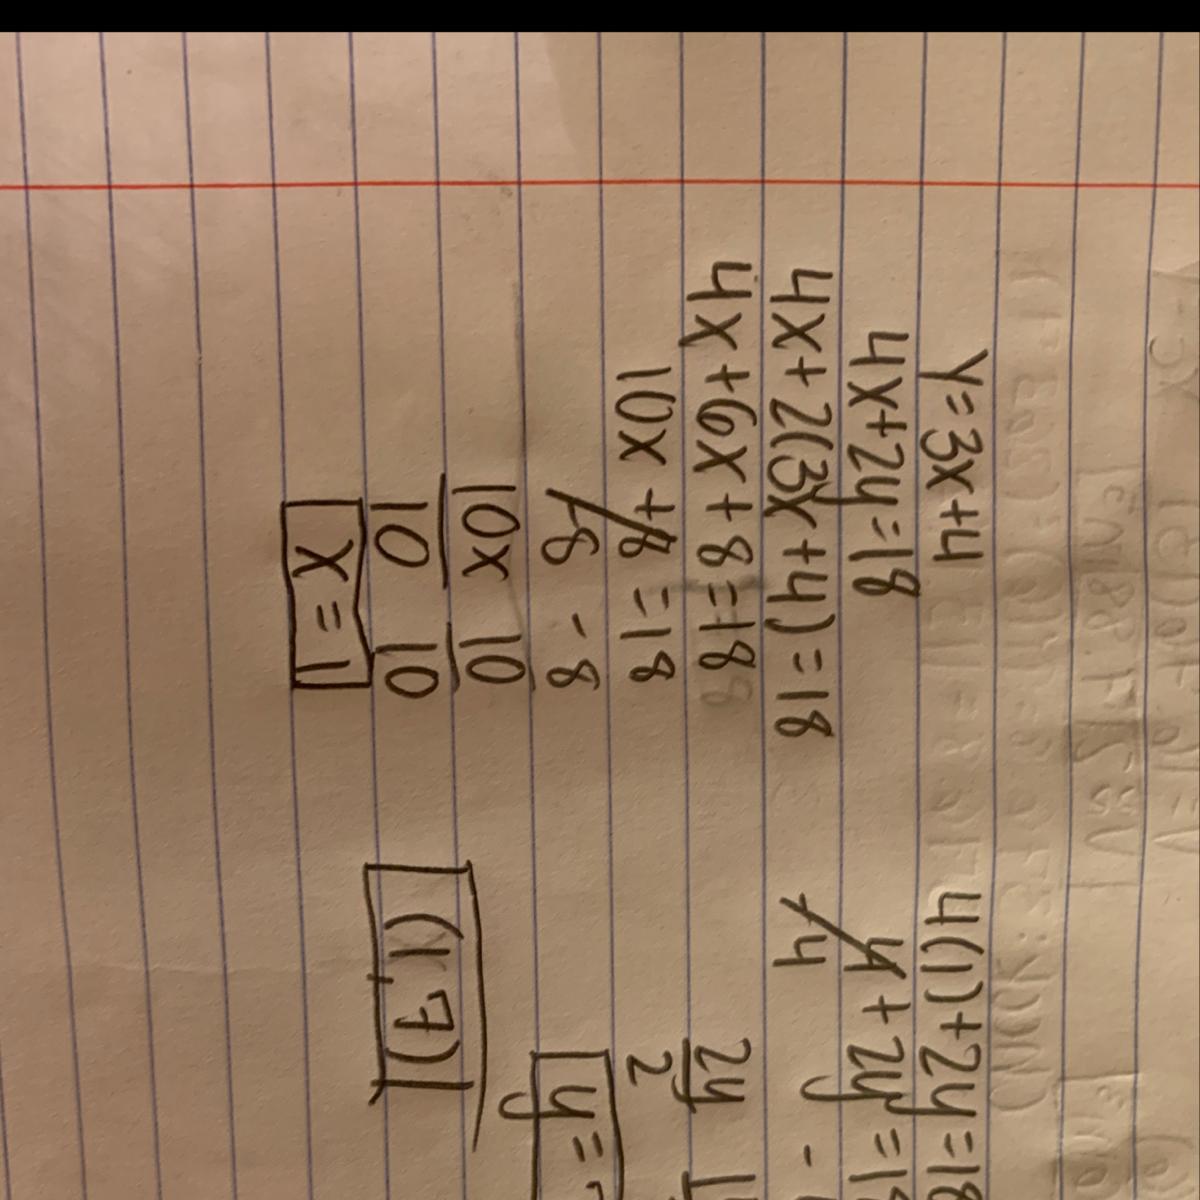 y=3x+4
4x+2y=18
4x+2(3x+4)=18
4x+6x+8=18
10x+8=18
-8 -8
10x 10
10 10
x=1
4(1)+2y=18
4+2y=1
-4 -
2y 1
2
y=
(1,7)